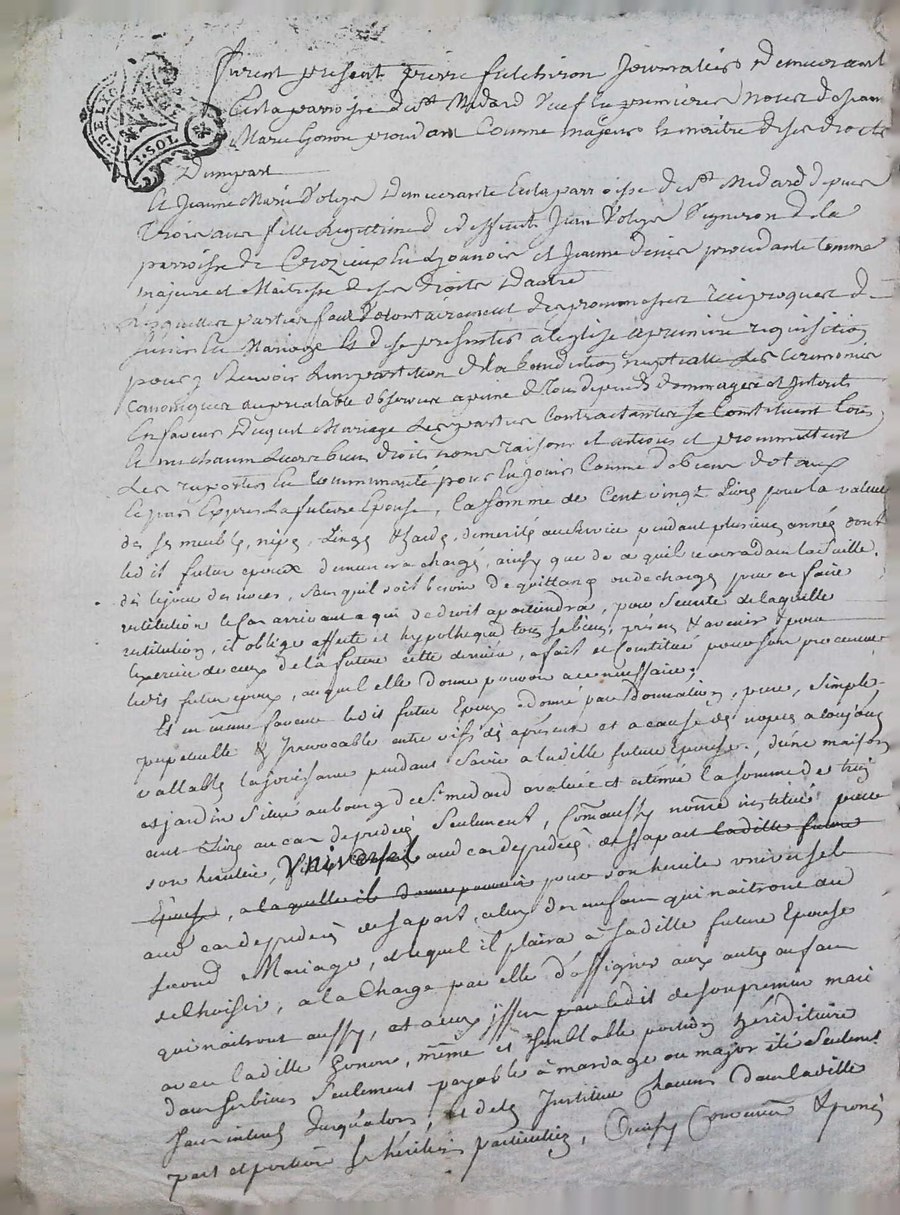 G. DE LYO
1. SOL
furent présent pierre fulchiron Journalier Demeurant
En la parroisse de st Médard veuf En premieres noces de
Marie Gonon procedant Comme majeur Et maitre de ses droits
D'une part
Et Jeanne Marie Demeurante En la parroisse de st Medard depuis
Trois ans fille légittime d et deffunt Jean Vigneron de la
parroisse de En Lyonnois et Jeanne Denis procedante Comme
majeure et Maitresse de ses Droits D'autre
Lesquelles parties font Volontairement des promesses reciproques de
s'unir En Mariage Et de se presenter à l'église à premiere requisition
pour y recevoir L'impartition de la benediction nuptialle Les ceremonies
canoniques au prealable observées a peine de tous depends dommages et Interets
En faveur Duquel Mariage Les parties Contractantes se Constituent tous
Et un chacun Leurs biens droits noms raisons et actions et promettent
Les raporter En Communauté pour En jouir Comme
Et par Exprès La future Epouse, la somme de Cent vingt Livres pour la valeur
de ses meubles, nipes, Linges & hardes, demerité au service pendant plusieurs années dont
ledit futur epoux demeurera chargé, ainsy que de ce qu'il recevra dans la suitte,
dès le jour des noces, sans qu'il soit besoin de quittance ou decharge pour en faire
restitution le cas arrivant a qui de droit apartiendra, pour seureté de laquelle
restitution, il oblige affecte et hypotheque tous ses biens, présens & avenir
l'exercice de ceux de la future cette derniere, a fait et constitué pour son procureur
ledit futur epoux, auquel elle donne pouvoir a ce necessaire;
Et en meme faveur ledit futur Epoux a donné par Donnation, pure, simple
perpetuelle & Irrevocable entre vifs dès apresent et a cause de noces a toujours
vallable la jouissance pendant sa vie a laditte future Epouse, d'une maison
et jardin situé au bourg de St medard évaluée et estimée la somme de trois
cent Livres au cas de predecès seulement, Comm'aussy nomme institue pour
son heritier, Universel audit cas de predecès et sa part laditte future
Epouse, a laquelle il donne pouvoir pour son heritier universel
audit cas de predecès de sa part, celuy des enfans qui naitront du
second Mariage, et lequel il plaira à ladille future Epouse
de Choisir, a la Charge par elle d'assigner aux autres enfans
qui naitront aussy, et a ceux issus par ledit de son premier mari
avec ladille Gonon, même et semblable portion héréditaire
dans ses biens seulement payable à mariage ou majorité seulement
sans interets Jusqu'alors, et de les Instituer Chacun dans laditte
part et portion ses heritiers particuliers, Ainsy Convenu & promis